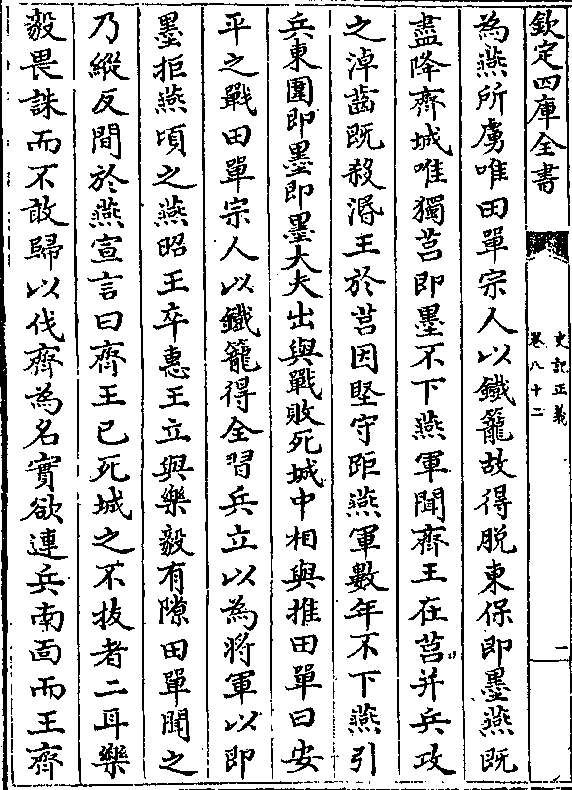 欽定四庫全書
史記正義
卷八十二
二
為燕所虜唯田單宗人以鐵籠故得脫東保即墨燕既
盡降齊城唯獨莒即墨不下燕軍聞齊王在莒并兵攻
之淖齒既殺湣王於莒因堅守距燕軍數年不下燕引
兵東圍即墨即墨大夫出與戰敗死城中相與推田單曰安
平之戰田單宗人以鐵籠得全習兵立以為將軍以即
墨拒燕頃之燕昭王卒惠王立與樂毅有隙田單聞之
乃縱反間於燕宣言曰齊王已死城之不拔者二耳樂
毅畏誅而不敢歸以伐齊為名實欲連兵南面而王齊